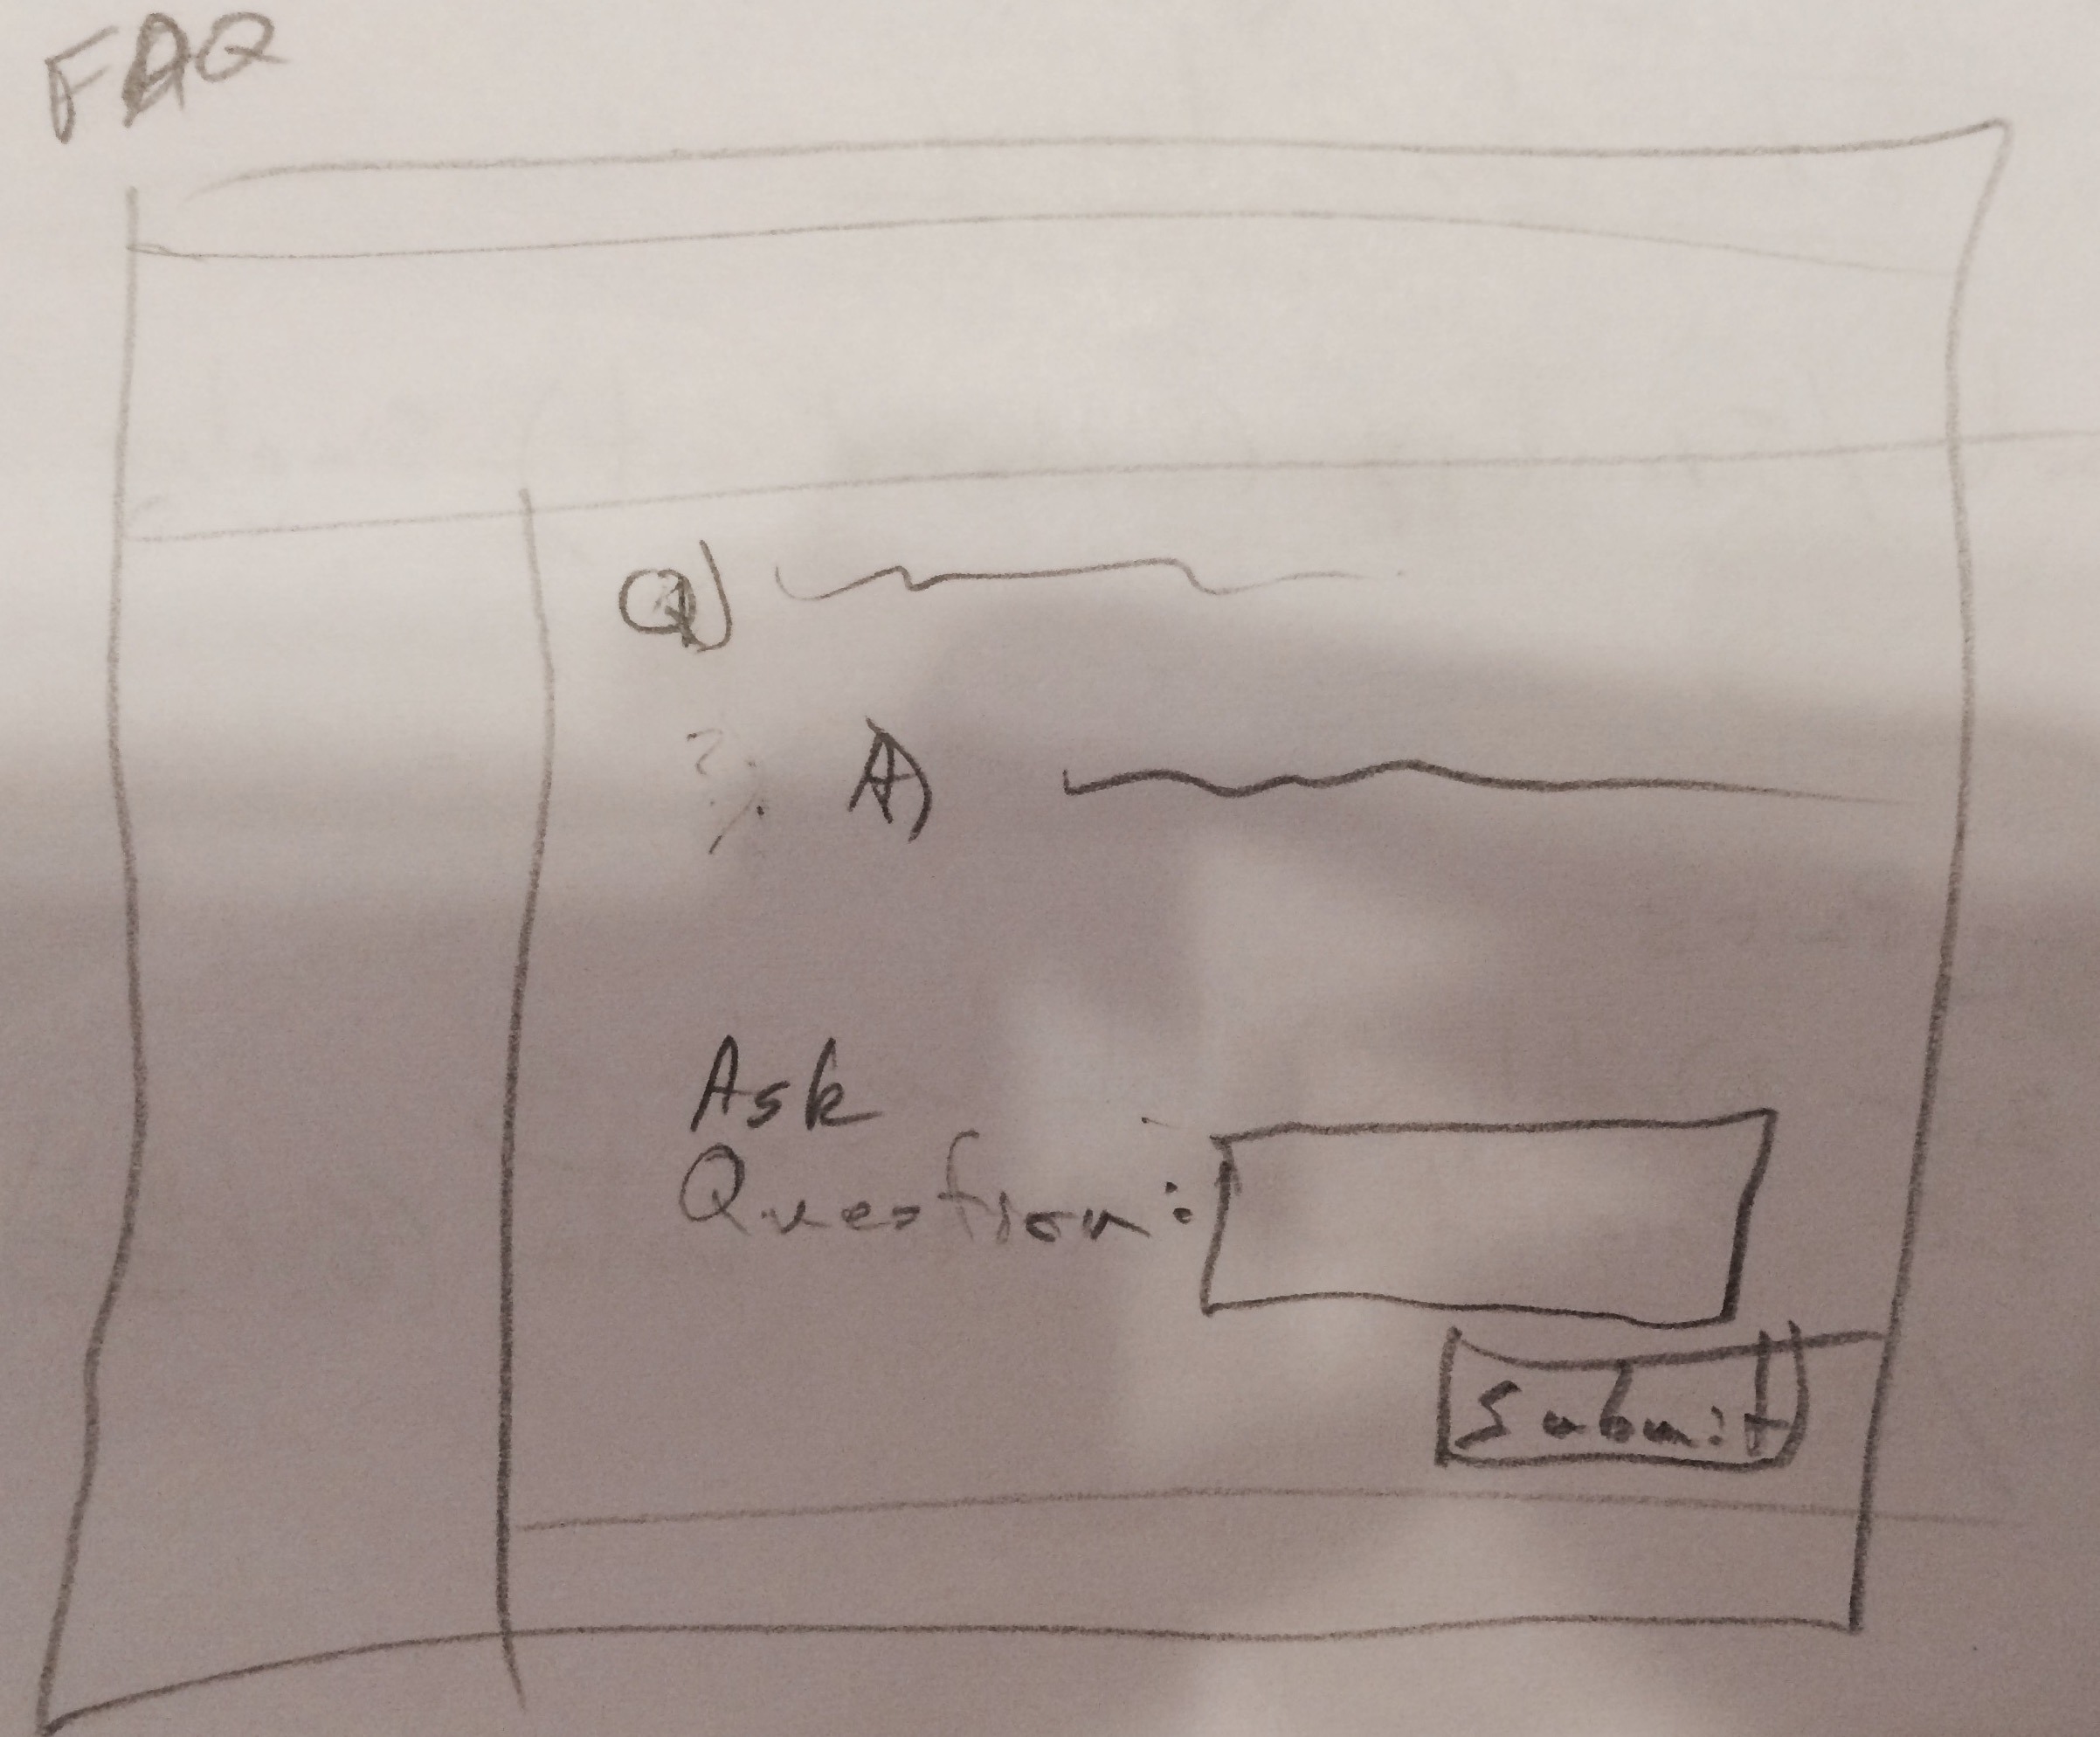 FAQ
Q)
A)
Ask
Question:
Submit